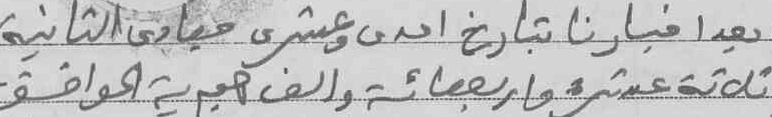 بعد اخبارنا بتاريخ احدى وعشرى جمادى الثانية
ثلاثة عشر واربعمائة والف هجرية الموافق